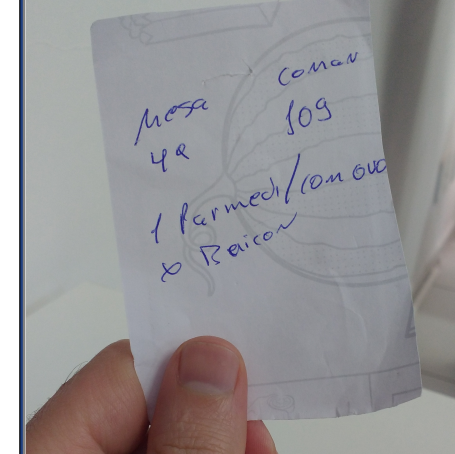 Mesa coman
42 109
1 Parmedi/com ovo
x Baicon